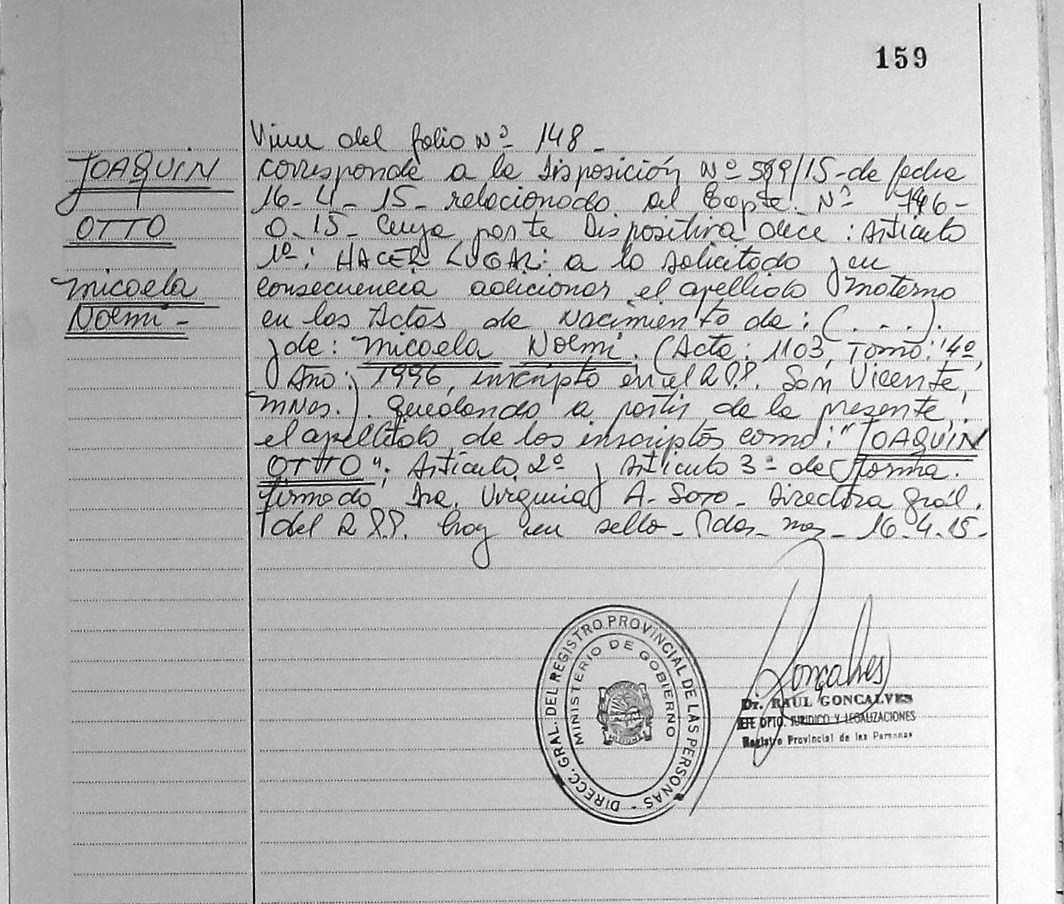 159
JOAQUIN
OTTO
Micaela
Noemi -
Viene del folio Nº 148 -
corresponde a la Disposición Nº 589/15 - de fecha
16 - 4 - 15 - relacionado al Expte. Nº 746 -
0. 15 - Cuya parte Dispositiva dice : Artículo
1º: HACER LUGAR: a lo solicitado y en
consecuencia adicionar el apellido materno
en las Actas de Nacimiento de : ( . . . ).
y de : Micaela Noemi. (Acta : 1103, Tomo: 4º,
Año: 1996, inscripto en el R.P.P. San Vicente,
Mnes.). Quedando a partir de la presente,
el apellido de los inscriptos como: " JOAQUIN
OTTO ". Artículo 2º y Artículo 3º de forma.
Firmado, Dra. Virginia A. Soto - Directora Gral.
del R.P.P. hay un sello - Pdas. Mnes - 16.4.15 -
DIRECC. GRAL. DEL REGISTRO PROVINCIAL DE LAS PERSONAS -
MINISTERIO DE GOBIERNO
Gonçalves
Dr. RAUL GONCALVES
JEFE DPTO. JURIDICO Y LEGALIZACIONES
Registro Provincial de las Personas